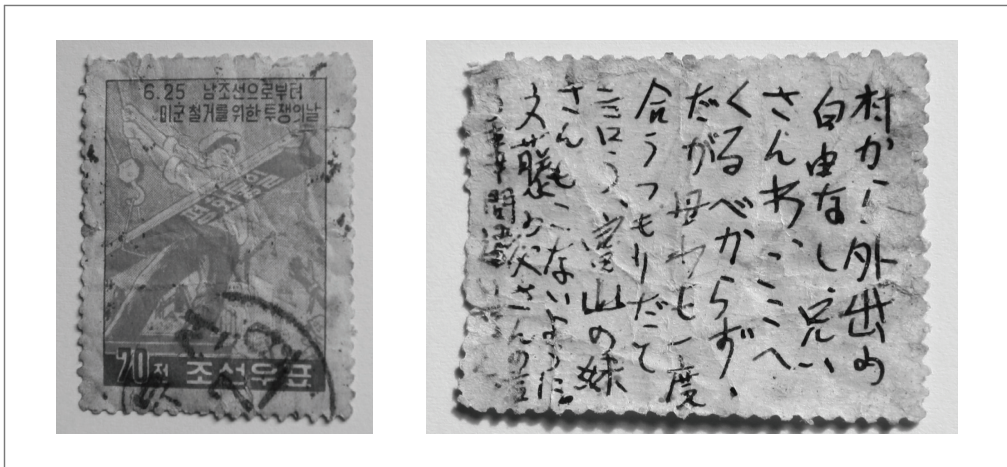 6.25 남조선으로부터
미군 철거를 위한 투쟁의 날
평화통일
전 조선우표
村から外出の
自由なし、兄い
さんわ、ここへ
くるべからず、
だが母わも一度
合うつもりだて
言ロう、富山の妹
さんもこないように。
文藤お父さんの